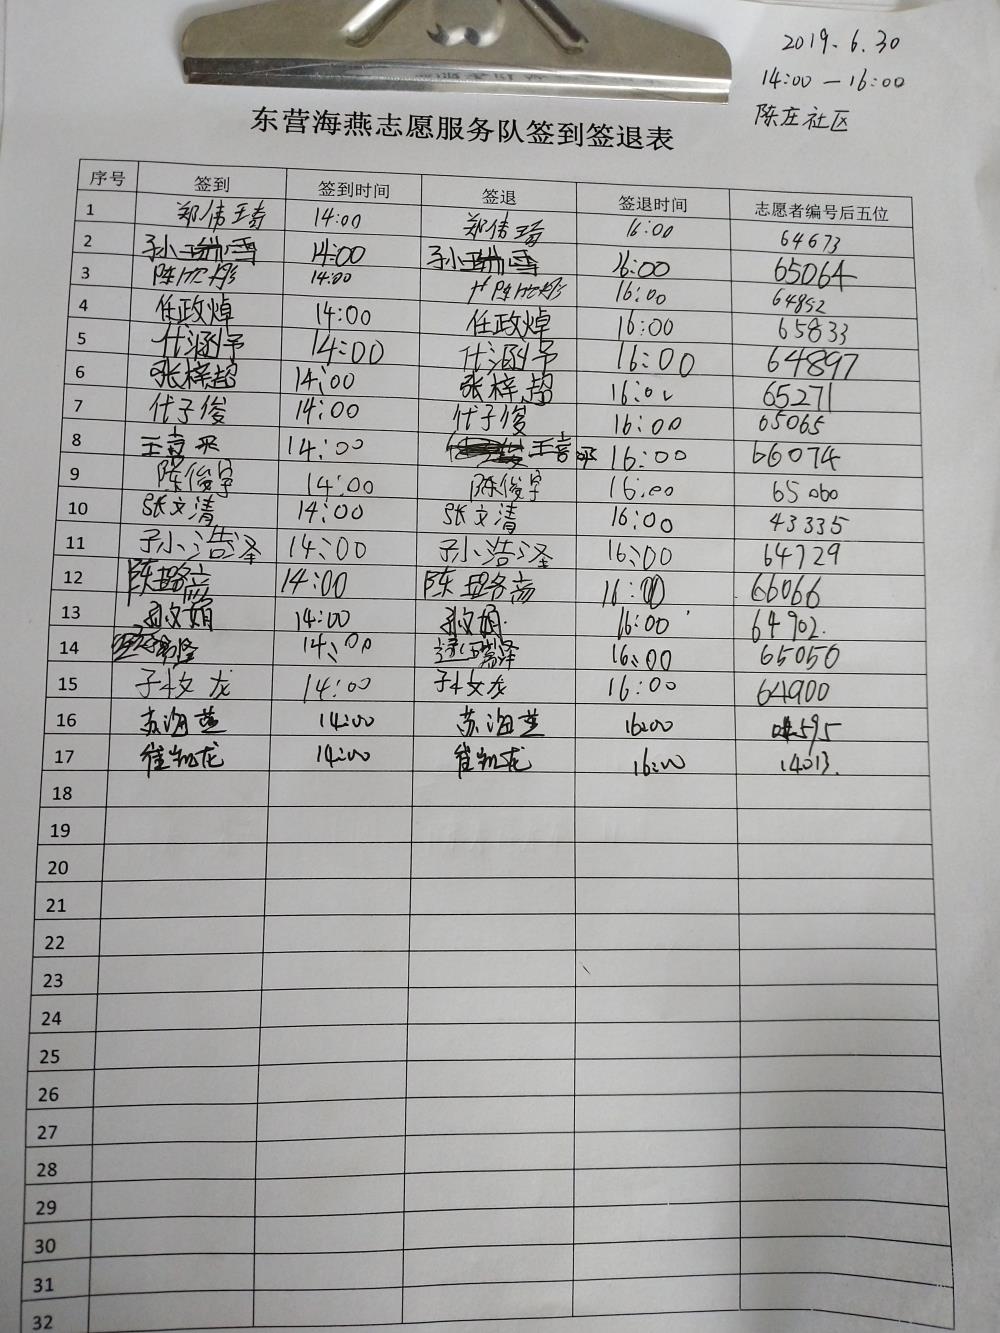 2019.6.30
14:00—16:00
陈庄社区
东营海燕志愿服务队签到签退表
序号 签到 签到时间 签退 签退时间 志愿者编号后五位
1 郑伟琦 14:00 郑伟琦 16:00 64673
2 孙瑞雪 14:00 孙瑞雪 16:00 65064
3 陈欣彤 14:00 陈欣彤 16:00 64892
4 任政焯 14:00 任政焯 16:00 65833
5 代涵予 14:00 代涵予 16:00 64897
6 张梓超 14:00 张梓超 16:00 65271
7 代子俊 14:00 代子俊 16:00 65065
8 王喜平 14:00 王喜平 16:00 66074
9 陈俊宇 14:00 陈俊宇 16:00 65060
10 张文清 14:00 张文清 16:00 43335
11 孙浩泽 14:00 孙浩泽 16:00 64729
12 陈璐 14:00 陈璐 16:00 66066
13 孙文娟 14:00 孙文娟 16:00 64902.
14 14:00 瑞泽 16:00 65050
15 孙文龙 14:00 孙文龙 16:00 64900
16 苏海燕 14:00 苏海燕 16:00
17 崔凯龙 14:00 崔凯龙 16:00 14013.
18
19
20
21
22
23
24
25
26
27
28
29
30
31
32